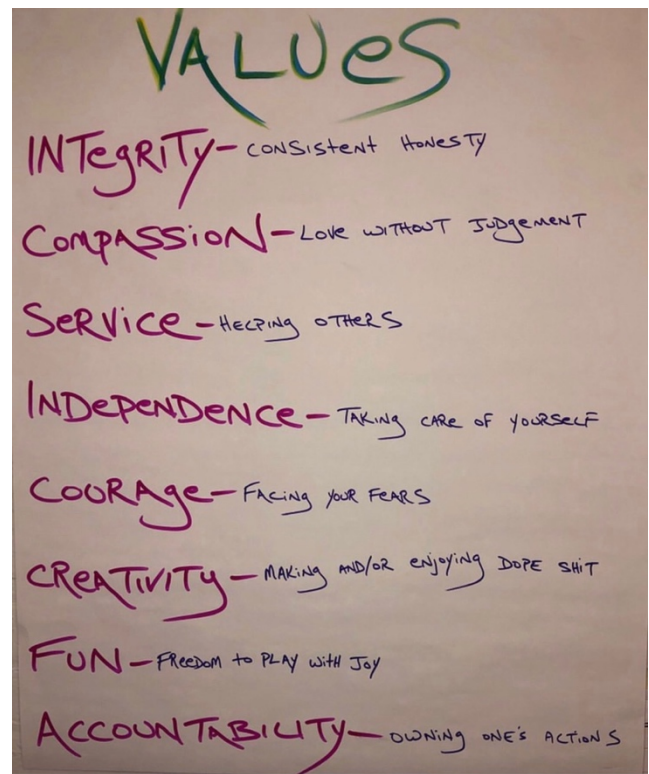 VALUES
INTEGRITY - CONSISTENT HONESTY
COMPASSION - LOVE WITHOUT JUDGEMENT
SERVICE - HELPING OTHERS
INDEPENDENCE - TAKING CARE OF YOURSELF
COURAGE - FACING YOUR FEARS
CREATIVITY - MAKING AND/OR ENJOYING DOPE SHIT
FUN - FREEDOM TO PLAY WITH JOY
ACCOUNTABILITY - OWNING ONE'S ACTIONS